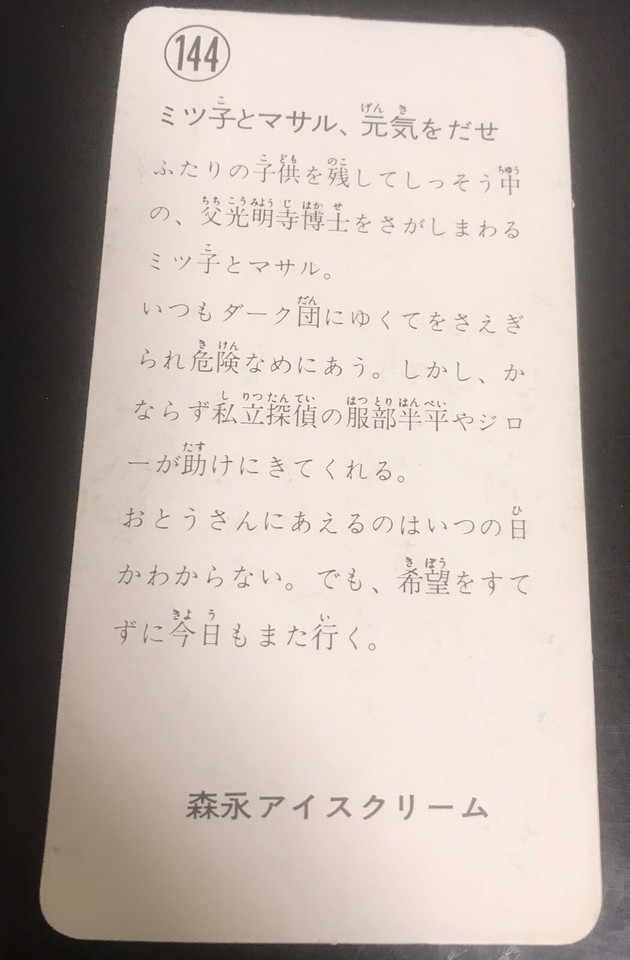 144
ミツ子とマサル、元気をだせ
ふたりの子供を残してしっそう中
の、父光明寺博士をさがしまわる
ミツ子とマサル。
いつもダーク団にゆくてをさえぎ
られ危険なめにあう。しかし、か
ならず私立探偵の服部半平やジロ
ーが助けにきてくれる。
おとうさんにあえるのはいつの日
かわからない。でも、希望をすて
ずに今日もまた行く。
森永アイスクリーム